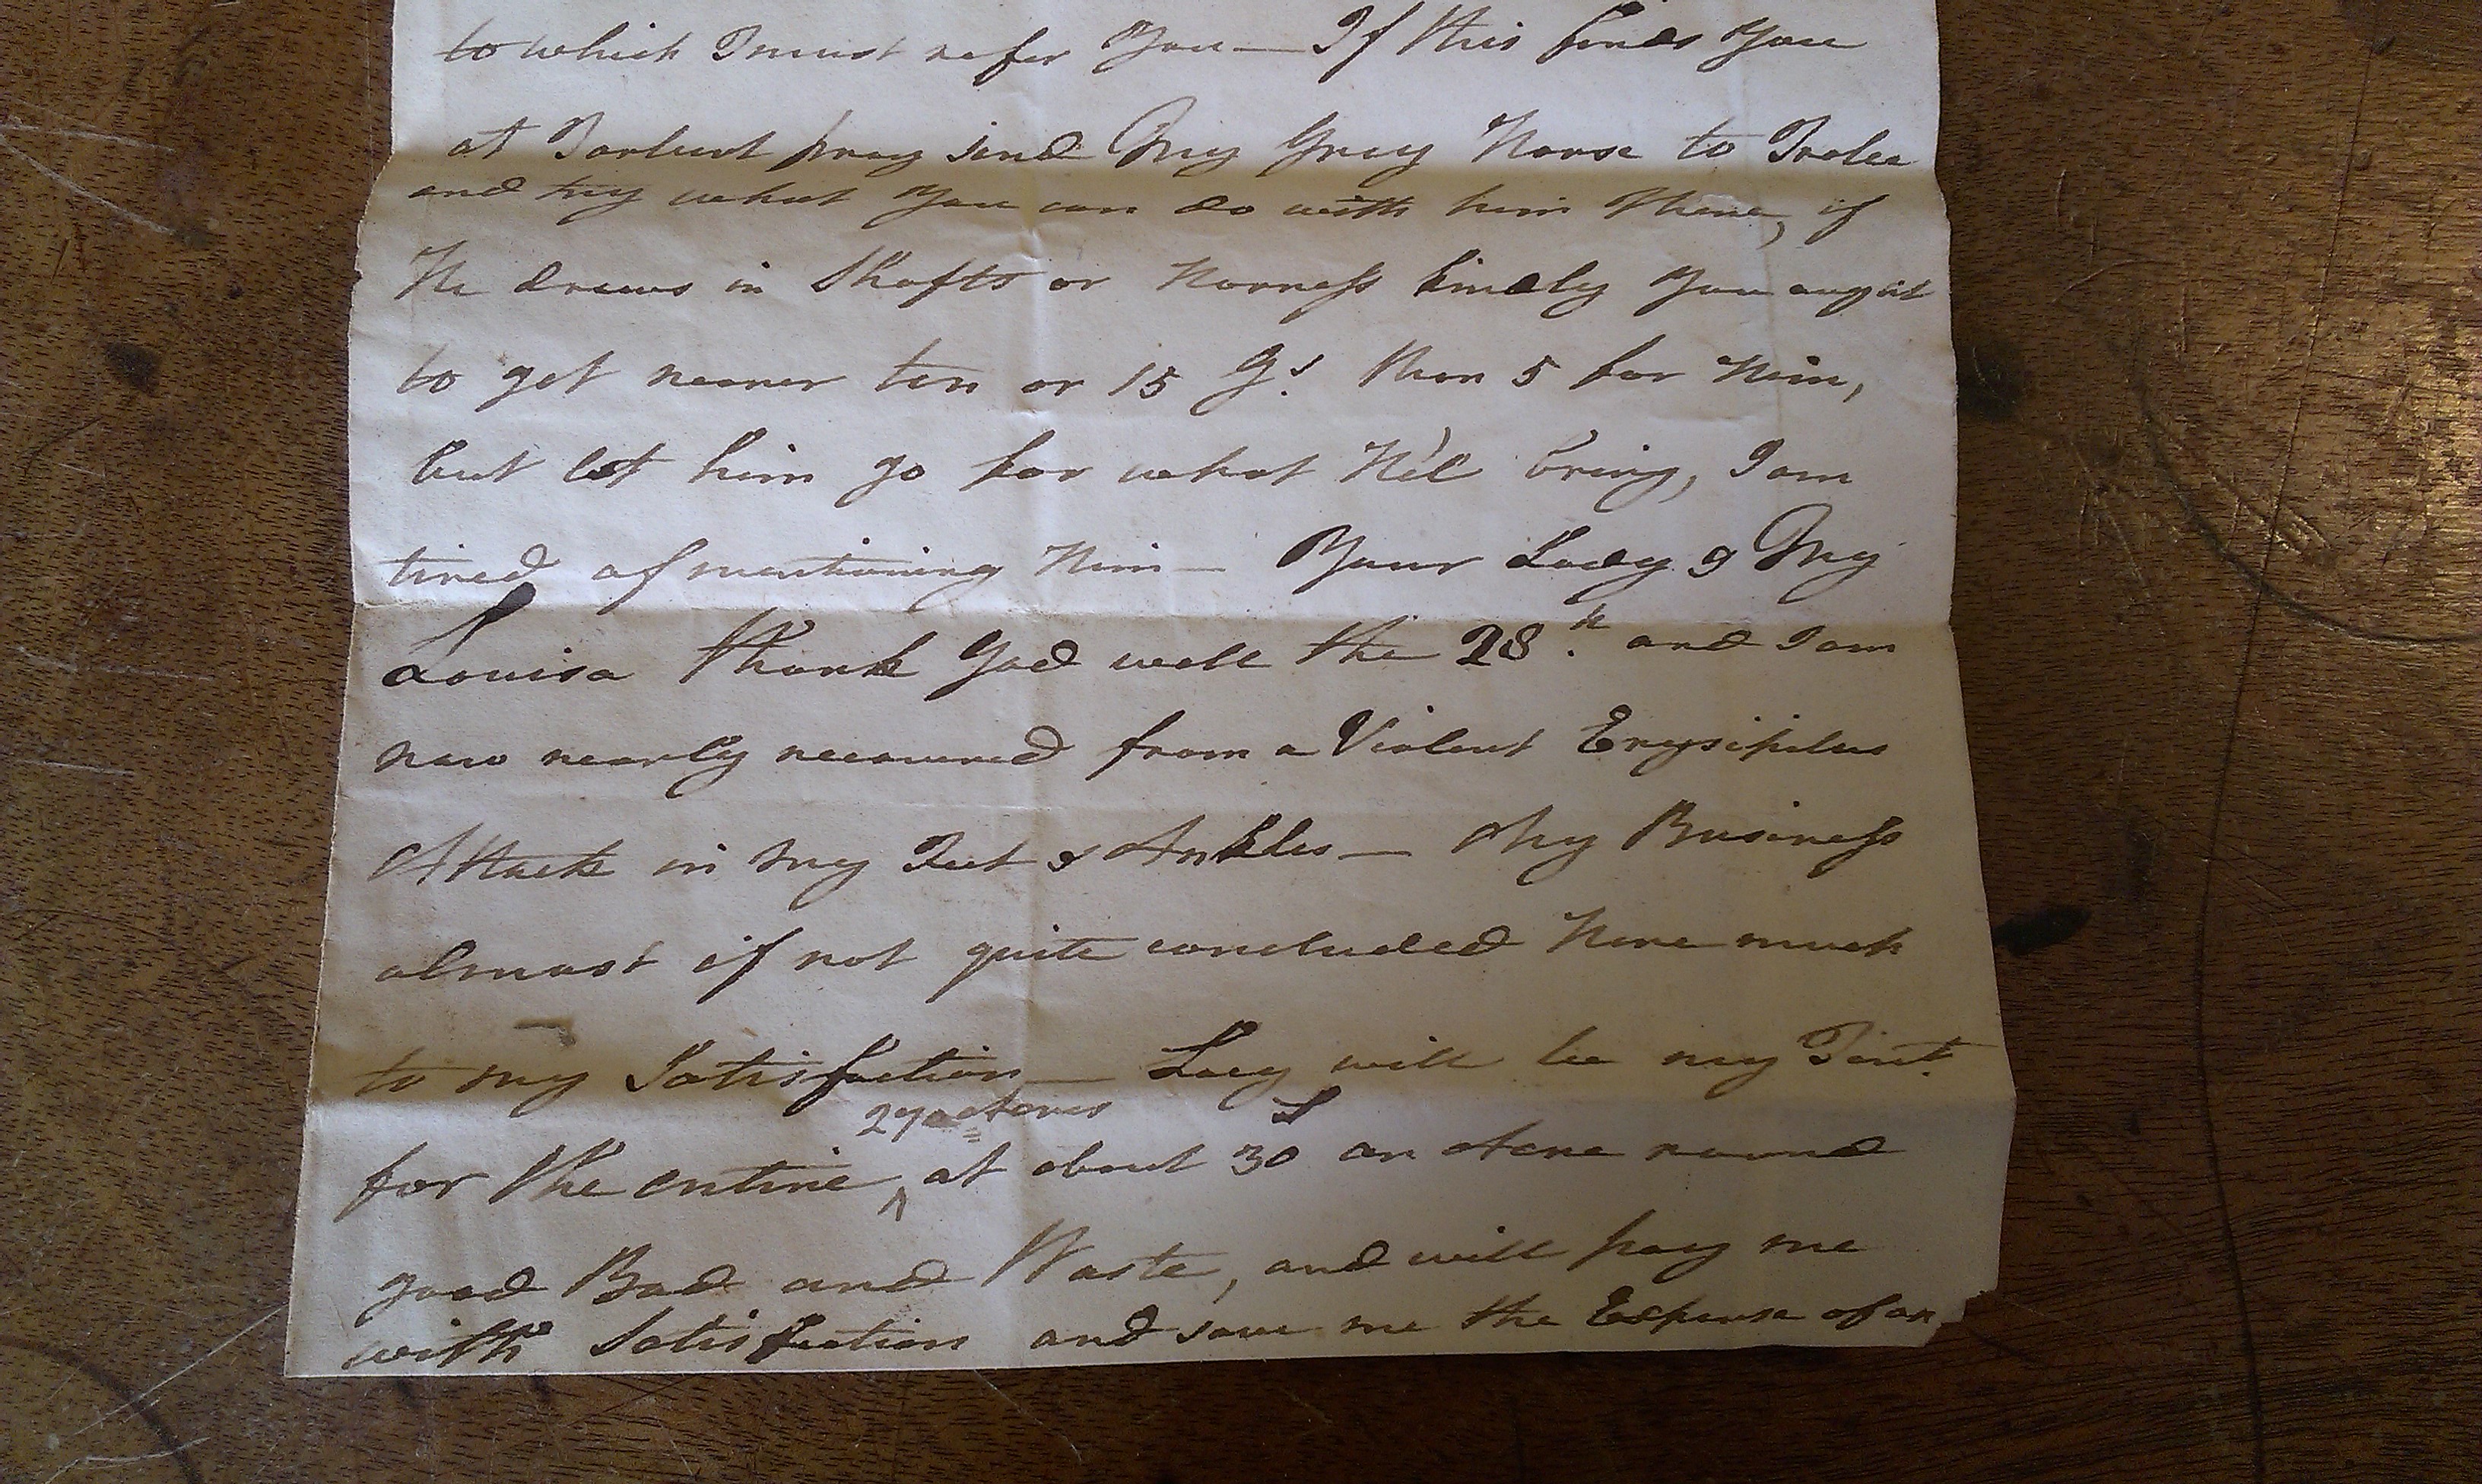 to which I must refer You — If this finds You
at Tarbert pray send My Grey Horse to Tralee
and try what You can do with him there, if
He draws in Shafts or Harness kindly You ought
to get nearer ten or 15 Gs. than 5 for Him,
but let him go for what He'l bring, I am
tired of mentioning Him — Your Lady & My
Louisa thank God well the 28th. and I am
now nearly recovered from a Violent Erysipelas
Attack in my Feet & Ankles — My Business
almost if not quite concluded Here much
to my Satisfaction — Lacy will be my Tent.
270 Acres S
for the entire ^ at about 30 an Acre round
good Bad and Waste, and will pay me
with Satisfaction and save me the Expense of an